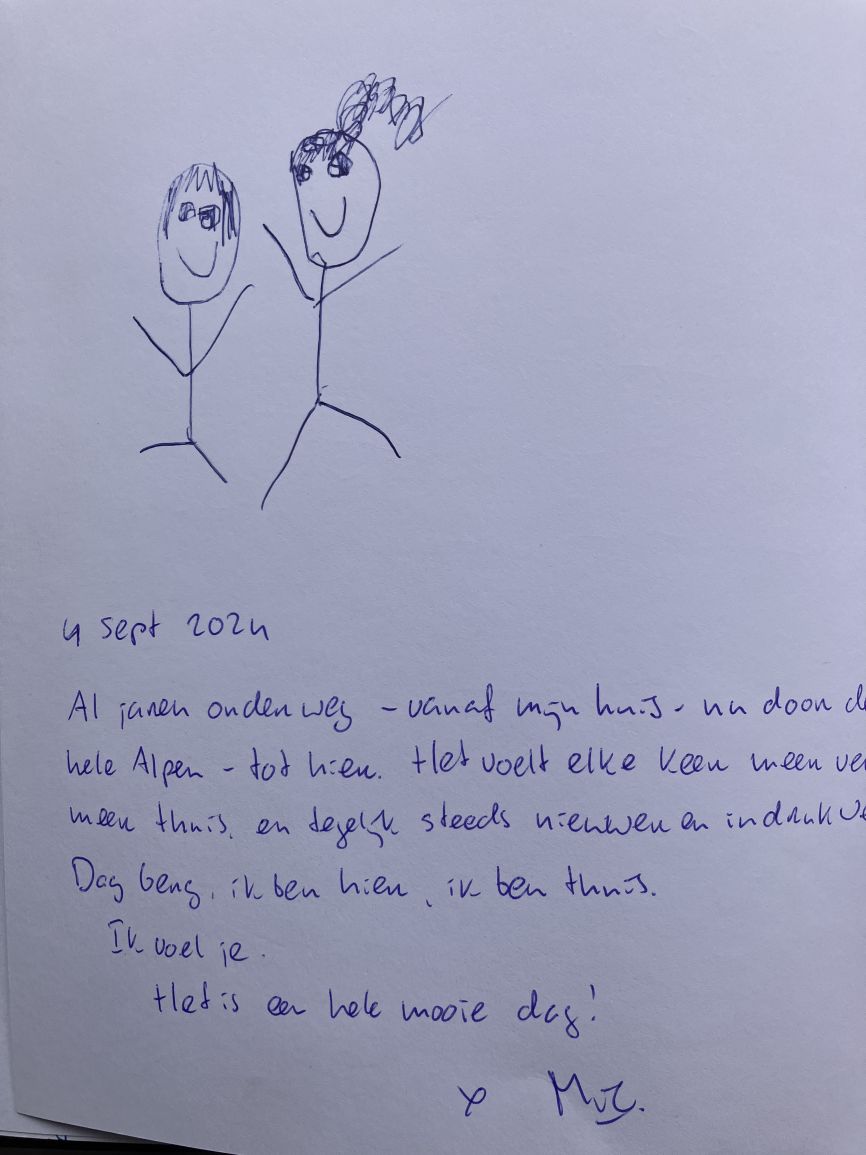 4 sept 2024
Al jaren onderweg - vanaf mijn huis - nu door de
hele Alpen - tot hier. Het voelt elke keer meer
meer thuis, en tegelijk steeds nieuwer en
Dag berg, ik ben hier, ik ben thuis.
Ik voel je.
Het is een hele mooie dag!
x